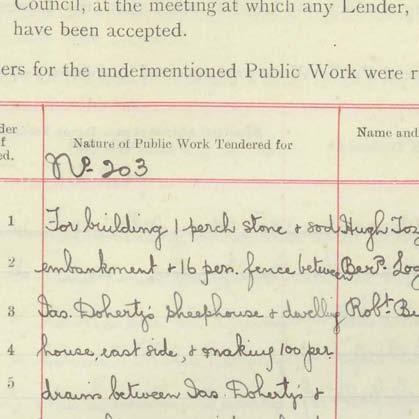 Council, at the meeting at which any Lender,
have been accepted.
ers for the undermentioned Public Work were r
der
f
ed.
Nature of Public Work Tendered for
Name and
No. 203
1 For building 1 perch stone & sod Hugh Toz
2 embankment & 16 per. fence between Bern. Log
3 Jas. Doherty's sheephouse & dwelling Robt. Be
4 house, east side, & making 100 per.
5 drains between Jas. Doherty's &